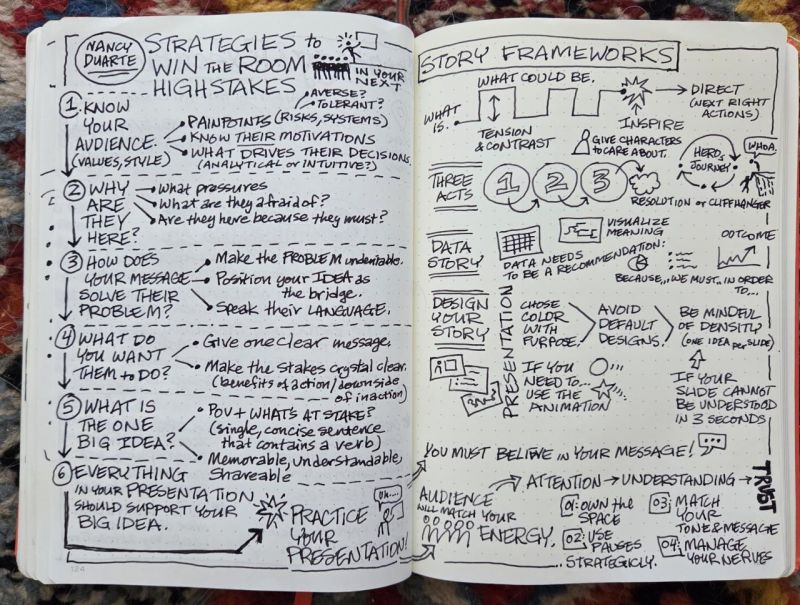 NANCY
DUARTE
STRATEGIES to
WIN THE ROOM
HIGHSTAKES
IN YOUR
NEXT
1 KNOW
YOUR
AUDIENCE.
(VALUES, STYLE)
AVERSE?
TOLERANT?
PAINPOINTS (RISKS, SYSTEMS)
KNOW THEIR MOTIVATIONS
WHAT DRIVES THEIR DECISIONS.
(ANALYTICAL or INTUITIVE?)
2 WHY
ARE
THEY
HERE?
What pressures
What are they afraid of?
Are they here because they must?
3 HOW DOES
YOUR MESSAGE
SOLVE THEIR
PROBLEM?
Make the PROBLEM undeniable.
Position your IDEA as
the bridge.
Speak their LANGUAGE.
4 WHAT DO
YOU WANT
THEM to DO?
Give one clear message.
Make the stakes crystal clear.
(benefits of action/downside
of inaction)
5 WHAT IS
THE ONE
BIG IDEA?
POV + WHAT'S AT STAKE?
(single, concise sentence
that contains a verb)
Memorable, understandable,
Shareable
6 EVERYTHING
IN YOUR PRESENTATION
SHOULD SUPPORT YOUR
BIG IDEA.
PRACTICE
YOUR
PRESENTATION!
UM...
124
STORY FRAMEWORKS
WHAT COULD BE.
WHAT
IS.
TENSION
& CONTRAST
INSPIRE
DIRECT
(NEXT RIGHT
ACTIONS)
GIVE CHARACTERS
TO CARE ABOUT.
HERO'S
JOURNEY
WHOA.
THREE
ACTS
1 2 3
RESOLUTION or CLIFFHANGER
DATA
STORY
VISUALIZE
MEANING
DATA NEEDS
TO BE A RECOMMENDATION:
OUTCOME
BECAUSE... WE MUST... IN ORDER
TO...
DESIGN
YOUR
STORY
PRESENTATION
CHOSE
COLOR
WITH
PURPOSE.
AVOID
DEFAULT
DESIGNS.
BE MINDFUL
OF DENSITY
(ONE IDEA per SLIDE)
IF YOU
NEED TO...
USE THE
ANIMATION
IF YOUR
SLIDE CANNOT
BE UNDERSTOOD
IN 3 SECONDS,
YOU MUST BELIEVE IN YOUR MESSAGE!
ATTENTION → UNDERSTANDING →
TRUST
AUDIENCE
WILL MATCH YOUR
ENERGY.
01: OWN THE
SPACE
02: USE
PAUSES
STRATEGICLY.
03: MATCH
YOUR
TONE & MESSAGE
04: MANAGE
YOUR NERVES